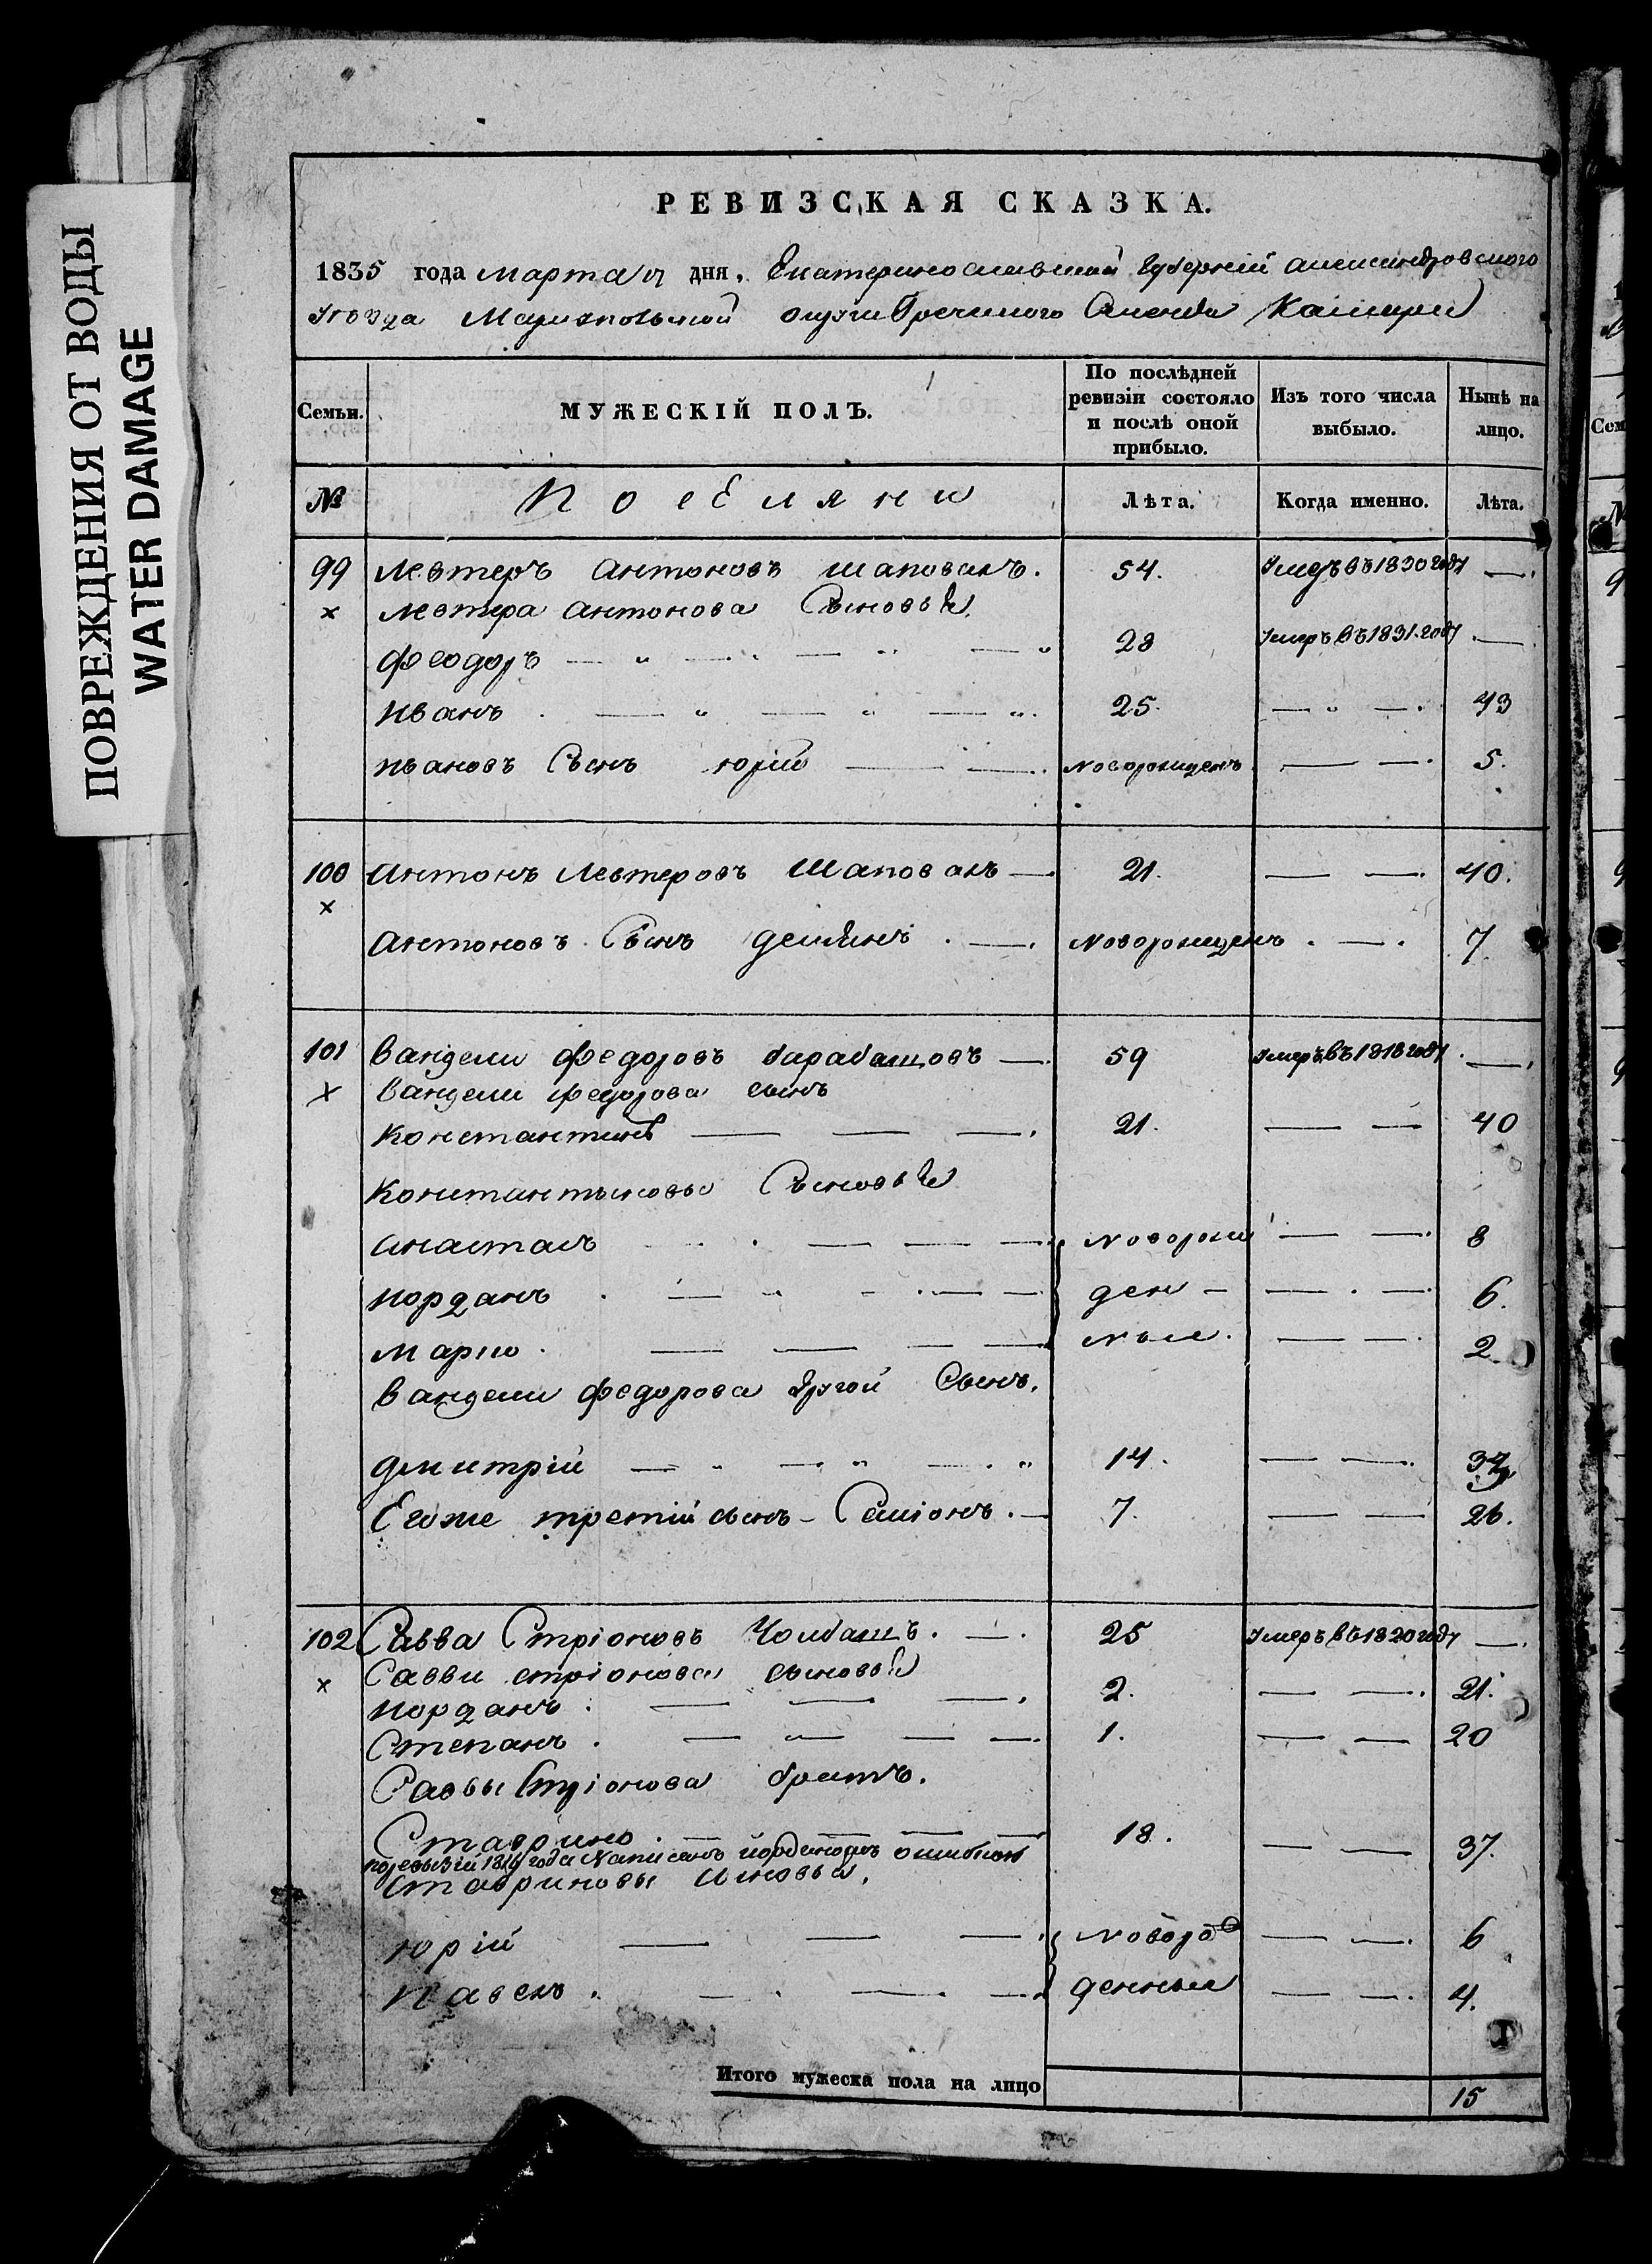 ПОВРЕЖДЕНИЯ ОТ ВОДЫ
WATER DAMAGE
РЕВИЗСКАЯ СКАЗКА.
1835 года марта дня, Екатеринославской губерніи александровского
уезда Мариупольской округи Греческого Селенія
Семьи. МУЖЕСКІЙ ПОЛЪ. По послѣдней ревизіи состояло и послѣ оной прибыло. Изъ того числа выбыло. Нынѣ на лицо.
№ Поселяни Лѣта. Когда именно. Лѣта.
99 Левтеръ антоновъ шаповалъ. 54. Умеръ въ 1830 году —.
× левтера антонова Сыновья.
феодоръ 28 Умеръ въ 1831. году —.
иванъ 25. 43
ивановъ Сынъ юрій новорожденъ 5.
100 антонъ левтеровъ Шаповалъ 21. 40.
×
антоновъ Сынъ новорожденъ 7.
101 вандели федоровъ барабашовъ 59 Умеръ въ 1818 году —.
× вандели федорова сынъ
константинъ 21. 40
константиновы Сыновья
анастасъ новорож 8
иорданъ ден 6.
марко ные. 2
вандели федорова другой Сынъ.
дмитрій 14. 37
Егоже третій сынъ Симіонъ. 7. 26.
102 Савва Стріоновъ Чолбашъ. 25 Умеръ въ 1820 году —.
× Саввы стріонова сыновья
иорданъ. 2. 21.
Степанъ. 1. 20
Саввы Стріонова братъ.
Ставрино. 18. 37.
по ревизіи 18 года написанъ иорданомъ ошибкою
Ставриновы сыновья.
юрій новорож 6
павелъ. денные 4.
Итого мужеска пола на лицо 15